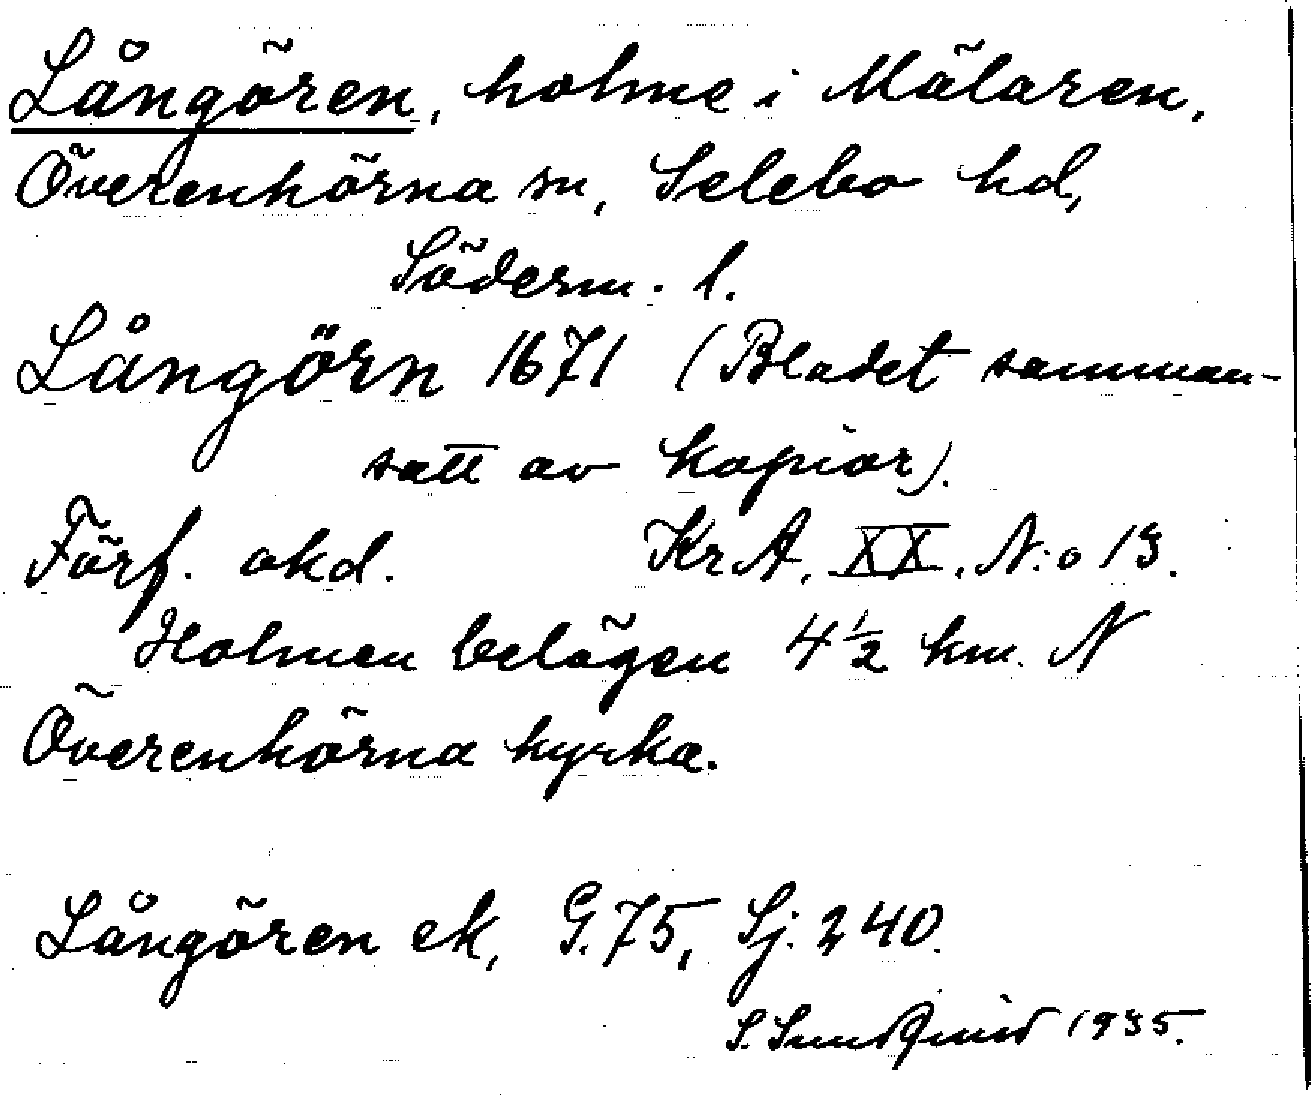 Långören, holme i Mälaren,
Överenhörna sn, Selebo hd,
Söderm. l.
Långörn 1671 (Bladet samman-
satt av kopior).
Förf. okd. Kr A. XX. N:o 13.
Holmen belägen 4 ½ km. N
Överenhörna kyrka.
Långören ek, G. 75, Sj. 240.
S. Sundqvist 1935.